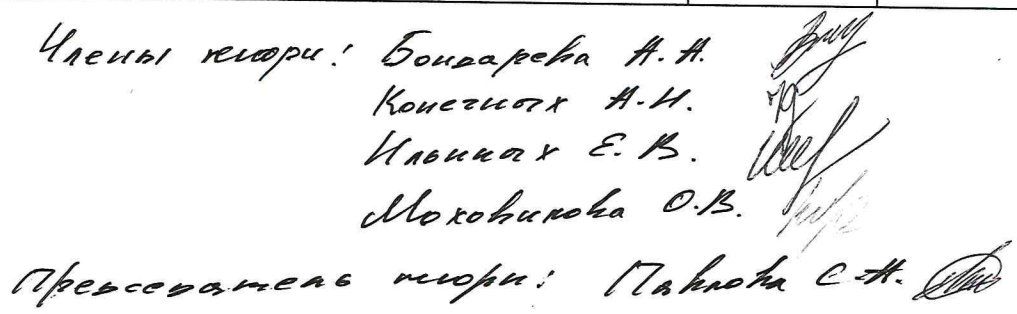 Члены жюри: Бондарева А.А.
Конечных А.Н.
Ильиных Е.В.
Моховикова О.В.
Председатель жюри: Павлова С.А.